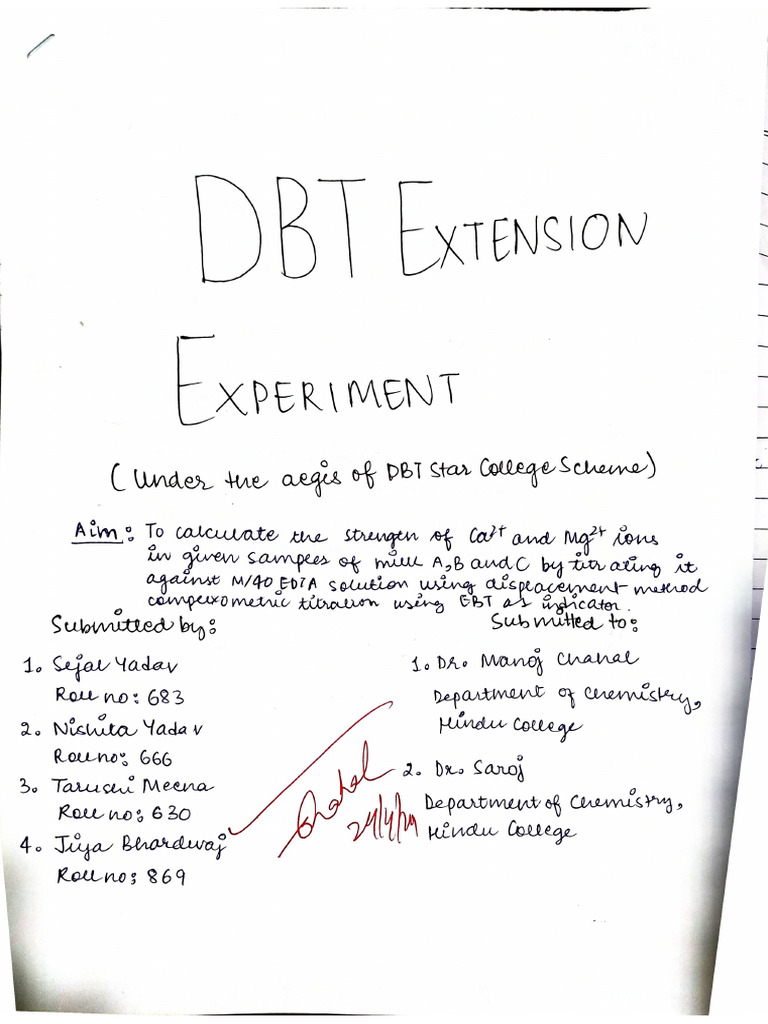 DBT EXTENSION
EXPERIMENT
(Under the aegis of DBT Star College Scheme)
Aim: To calculate the strength of Ca2+ and Mg2+ ions
in given samples of milk A, B and C by titrating it
against M/40 EDTA solution using displacement method
complexometric titration using EBT as indicator.
Submitted by:
1. Sejal Yadav
Roll no: 683
2. Nishita Yadav
Roll no: 666
3. Tarushi Meena
Roll no: 630
4. Jiya Bhardwaj
Roll no: 869
Submitted to:
1. Dr. Manoj Chahal
Department of Chemistry,
Hindu College
2. Dr. Saroj
Department of Chemistry,
Hindu College
Chahal